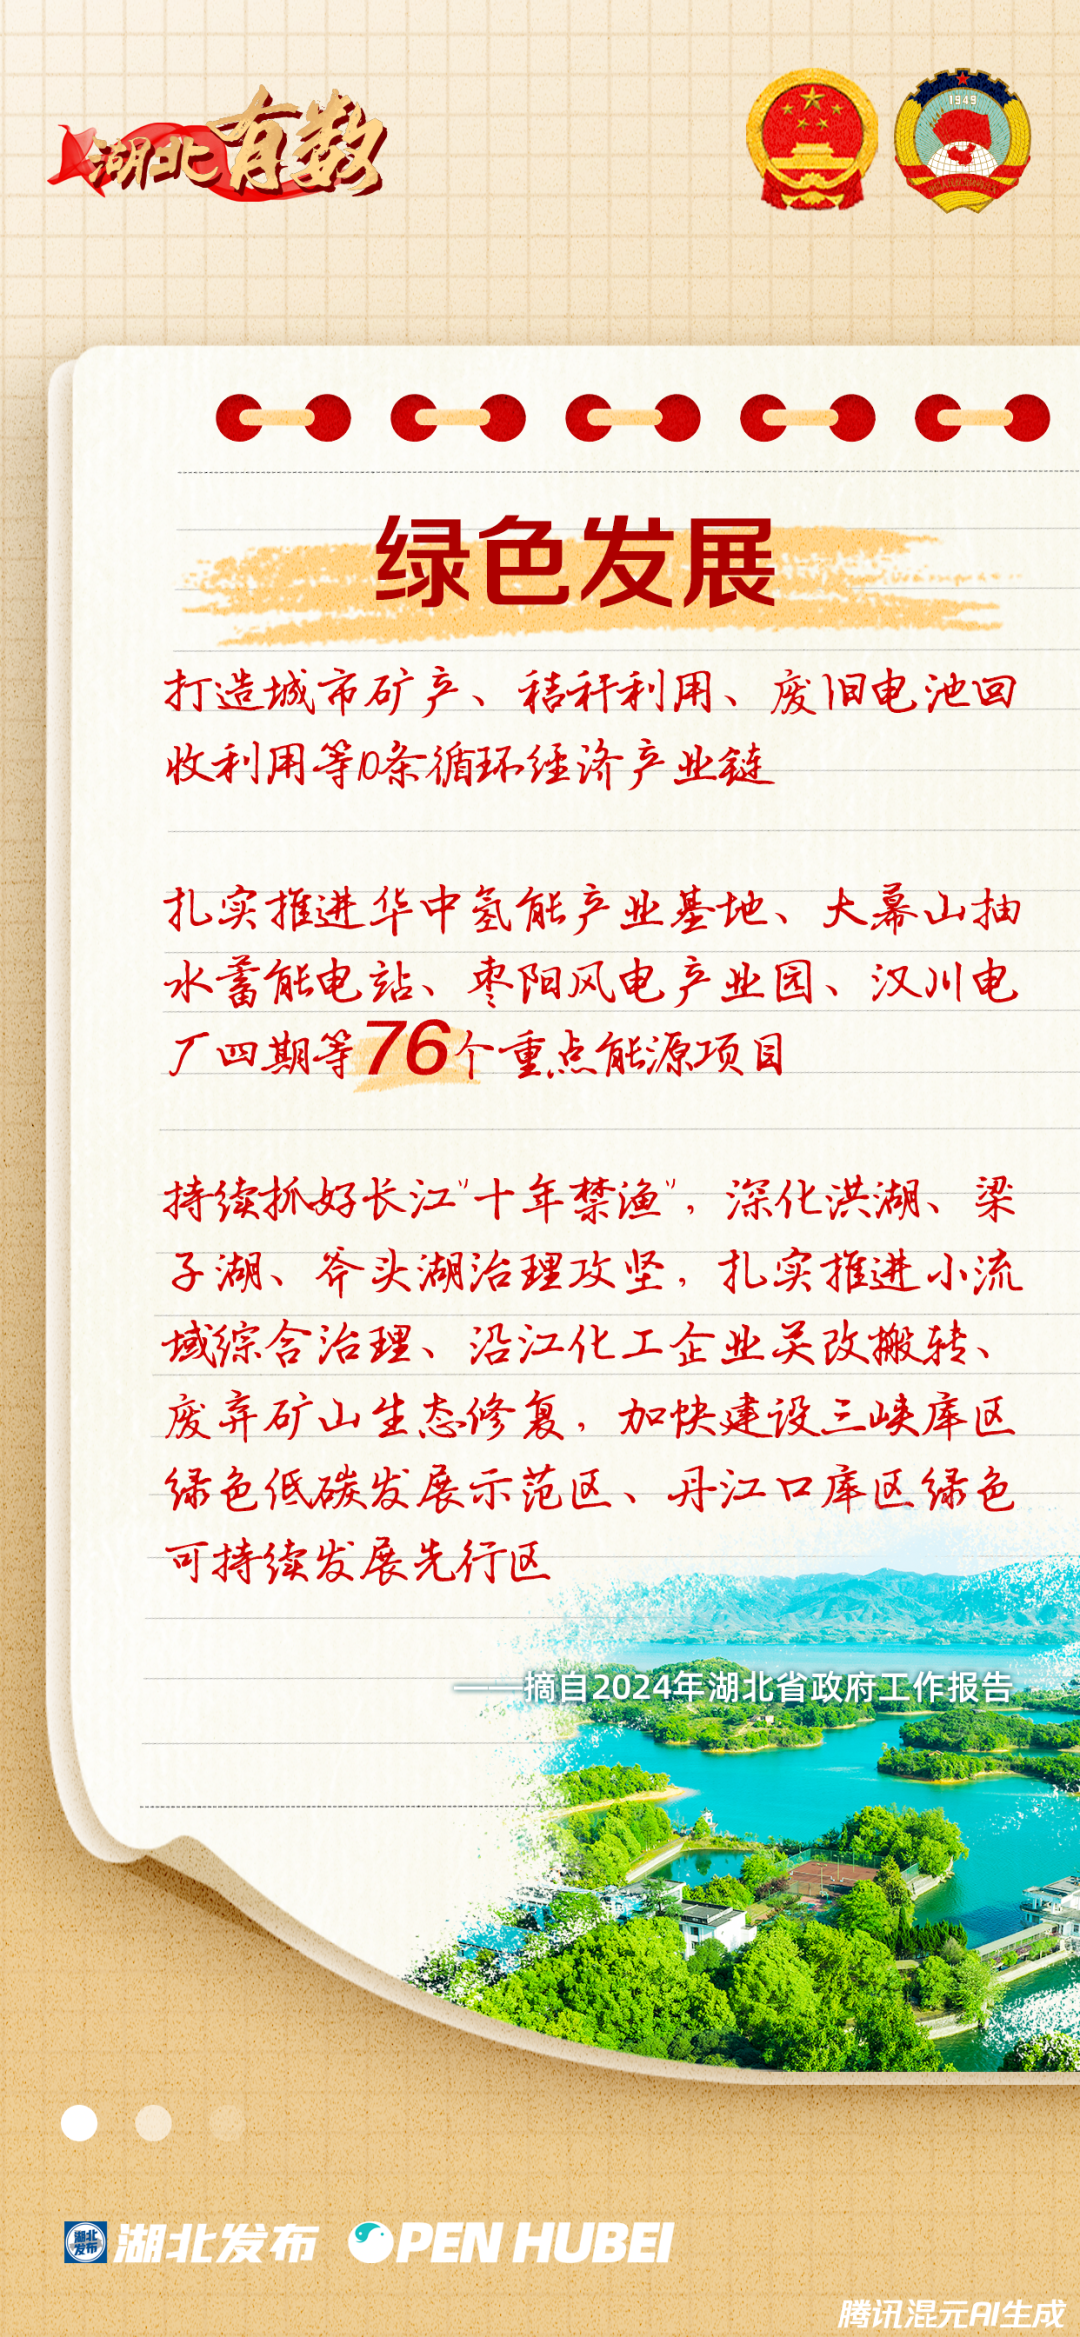 湖北有数
1949
绿色发展
打造城市矿产、秸秆利用、废旧电池回
收利用等10条循环经济产业链
扎实推进华中氢能产业基地、大幕山抽
水蓄能电站、枣阳风电产业园、汉川电
厂四期等76个重点能源项目
持续抓好长江“十年禁渔”，深化洪湖、梁
子湖、斧头湖治理攻坚，扎实推进小流
域综合治理、沿江化工企业关改搬转、
废弃矿山生态修复，加快建设三峡库区
绿色低碳发展示范区、丹江口库区绿色
可持续发展先行区
——摘自2024年湖北省政府工作报告
湖北发布 湖北发布 OPEN HUBEI
腾讯混元AI生成